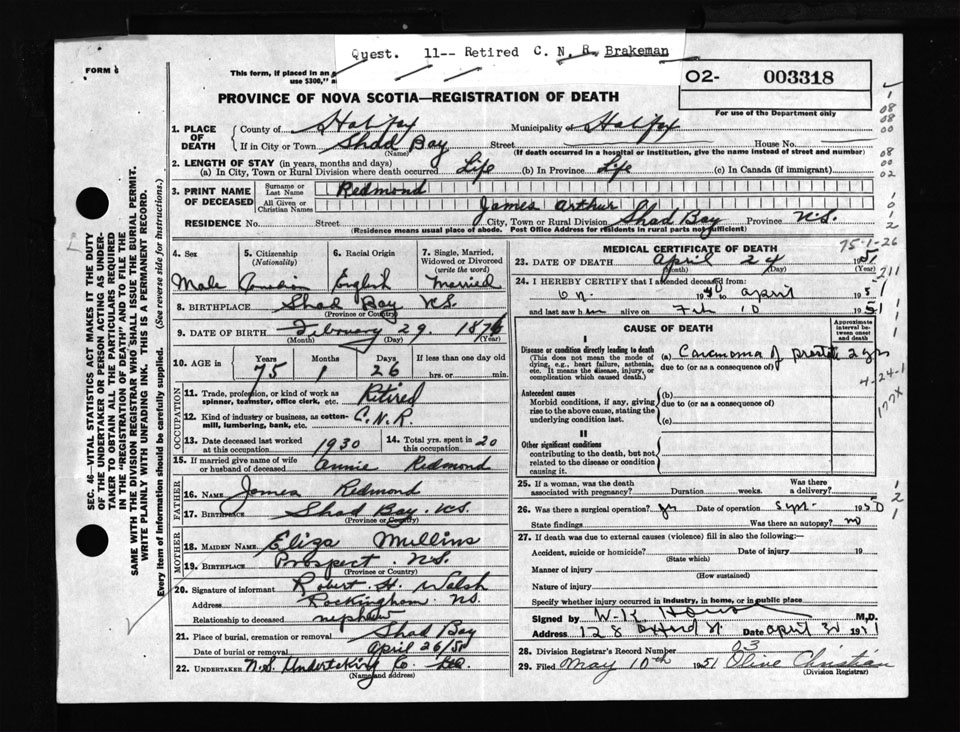 Quest. 11-- Retired C. N. R. Brakeman
FORM 6
This form, if placed in an
use $300," a
O2- 003318
For use of the Department only
PROVINCE OF NOVA SCOTIA—REGISTRATION OF DEATH
1. PLACE OF DEATH County of Halifax Municipality of Halifax
If in City or Town Shad Bay Street House No.
(Name) (If death occurred in a hospital or institution, give the name instead of street and number)
2. LENGTH OF STAY (in years, months and days)
(a) In City, Town or Rural Division where death occurred Life (b) In Province Life (c) In Canada (if immigrant)
3. PRINT NAME OF DECEASED Surname or Last Name Redmond
All Given or Christian Names James Arthur
RESIDENCE No. Street City, Town or Rural Division Shad Bay Province N.S.
(Residence means usual place of abode. Post Office Address for residents in rural parts not sufficient)
SEC. 46—VITAL STATISTICS ACT MAKES IT THE DUTY
OF THE UNDERTAKER OR PERSON ACTING AS UNDER-
TAKER TO OBTAIN ALL THE PARTICULARS REQUIRED
IN THE "REGISTRATION OF DEATH" AND TO FILE THE
SAME WITH THE DIVISION REGISTRAR WHO SHALL ISSUE THE BURIAL PERMIT.
WRITE PLAINLY WITH UNFADING INK. THIS IS A PERMANENT RECORD.
Every item of Information should be carefully supplied. (See reverse side for instructions.)
4. Sex 5. Citizenship (Nationality) 6. Racial Origin 7. Single, Married, Widowed or Divorced (write the word)
Male Canadian English Married
8. BIRTHPLACE Shad Bay N.S.
(Province or Country)
9. DATE OF BIRTH February 29. 1876
(Month) (Day) (Year)
10. AGE in Years Months Days If less than one day old
75 1 26 hrs. or min.
OCCUPATION
11. Trade, profession, or kind of work as spinner, teamster, office clerk, etc. Retired
12. Kind of industry or business, as cotton-mill, lumbering, bank, etc. C.N.R.
13. Date deceased last worked at this occupation 1930 14. Total yrs. spent in this occupation 20
15. If married give name of wife or husband of deceased Annie Redmond
FATHER
16. NAME James Redmond
17. BIRTHPLACE Shad Bay. N.S.
(Province or Country)
MOTHER
18. MAIDEN NAME Eliza Mullins
19. BIRTHPLACE Prospect. N.S.
(Province or Country)
20. Signature of informant Robert H. Walsh
Address Rockingham. N.S.
Relationship to deceased nephew
21. Place of burial, cremation or removal Shad Bay
Date of burial or removal April 26/51
22. UNDERTAKER N.S. Undertaking Co. Ltd.
(Name and address)
MEDICAL CERTIFICATE OF DEATH
75-1-26
23. DATE OF DEATH April 24 1951
(Month) (Day) (Year)
24. I HEREBY CERTIFY that I attended deceased from:
1950 to April 1951
and last saw him alive on Feb 10 1951
CAUSE OF DEATH
Approximate interval between onset and death
I
Disease or condition directly leading to death (a) Carcinoma of prostate 2 yrs
(This does not mean the mode of dying, e.g., heart failure, asthenia, etc. It means the disease, injury, or complication which caused death.) due to (or as a consequence of)
4-24-1
177X
Antecedent causes (b)
Morbid conditions, if any, giving rise to the above cause, stating the underlying condition last. due to (or as a consequence of)
(c)
II
Other significant conditions
contributing to the death, but not related to the disease or condition causing it.
25. If a woman, was the death associated with pregnancy? Duration weeks. Was there a delivery?
26. Was there a surgical operation? yes Date of operation Sept. 1950
State findings Was there an autopsy? no
27. If death was due to external causes (violence) fill in also the following:—
Accident, suicide or homicide? Date of injury 19
(State which)
Manner of injury
(How sustained)
Nature of injury
Specify whether injury occurred in industry, in home, or in public place
Signed by W. K. M.D.
Address 128 Oxford St. Date April 30 1951
28. Division Registrar's Record Number 03
29. Filed May 10th 1951 Olive Christian
(Division Registrar)